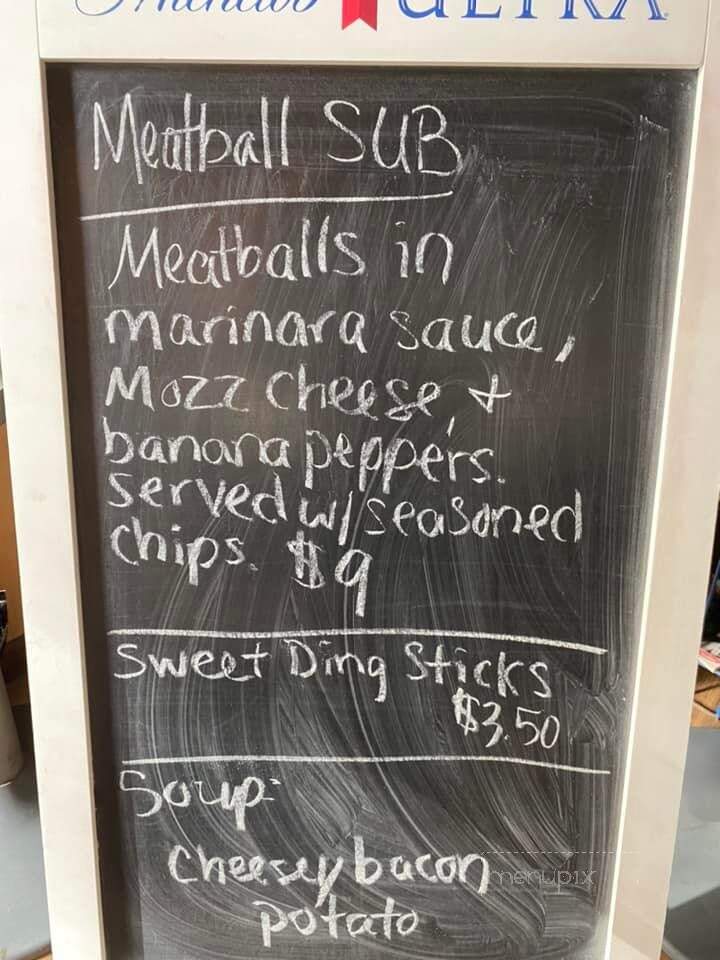 Michelob ULTRA
Meatball SUB
Meatballs in
marinara sauce,
Mozz cheese, +
banana peppers.
served w/ seasoned
chips. $9
Sweet Ding Sticks
$3.50
Soup:
cheesey bacon
potato
menupix